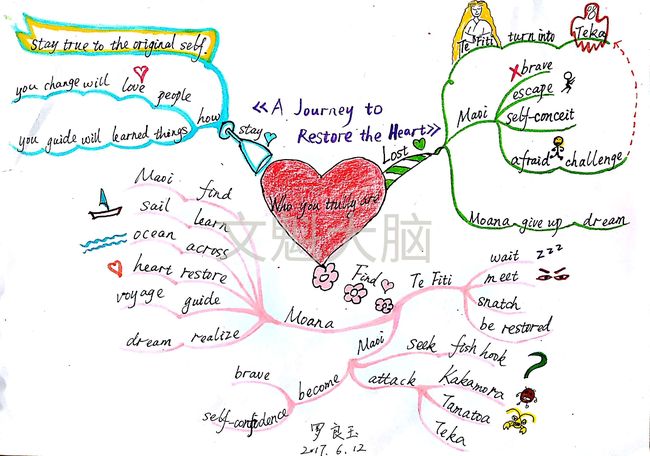 stay true to the original self.
you change will love people
you guide will learned things
how
stay
《A Journey to
Restore the Heart》
Who you trully are
Lost
Te Fiti
turn into
Teka
Maoi
brave
escape
self-conceit
afraid challenge
Moana give up dream
Find
Moana
Maoi find
sail learn
ocean across
heart restore
voyage guide
dream realize
Te Fiti
wait
zzz
meet
snatch
be restored
Maoi
seek fish hook
attack
Kakamora
Tamatoa
Teka
become
brave
self-confidence
文魁大脑
罗良玉
2017.6.12